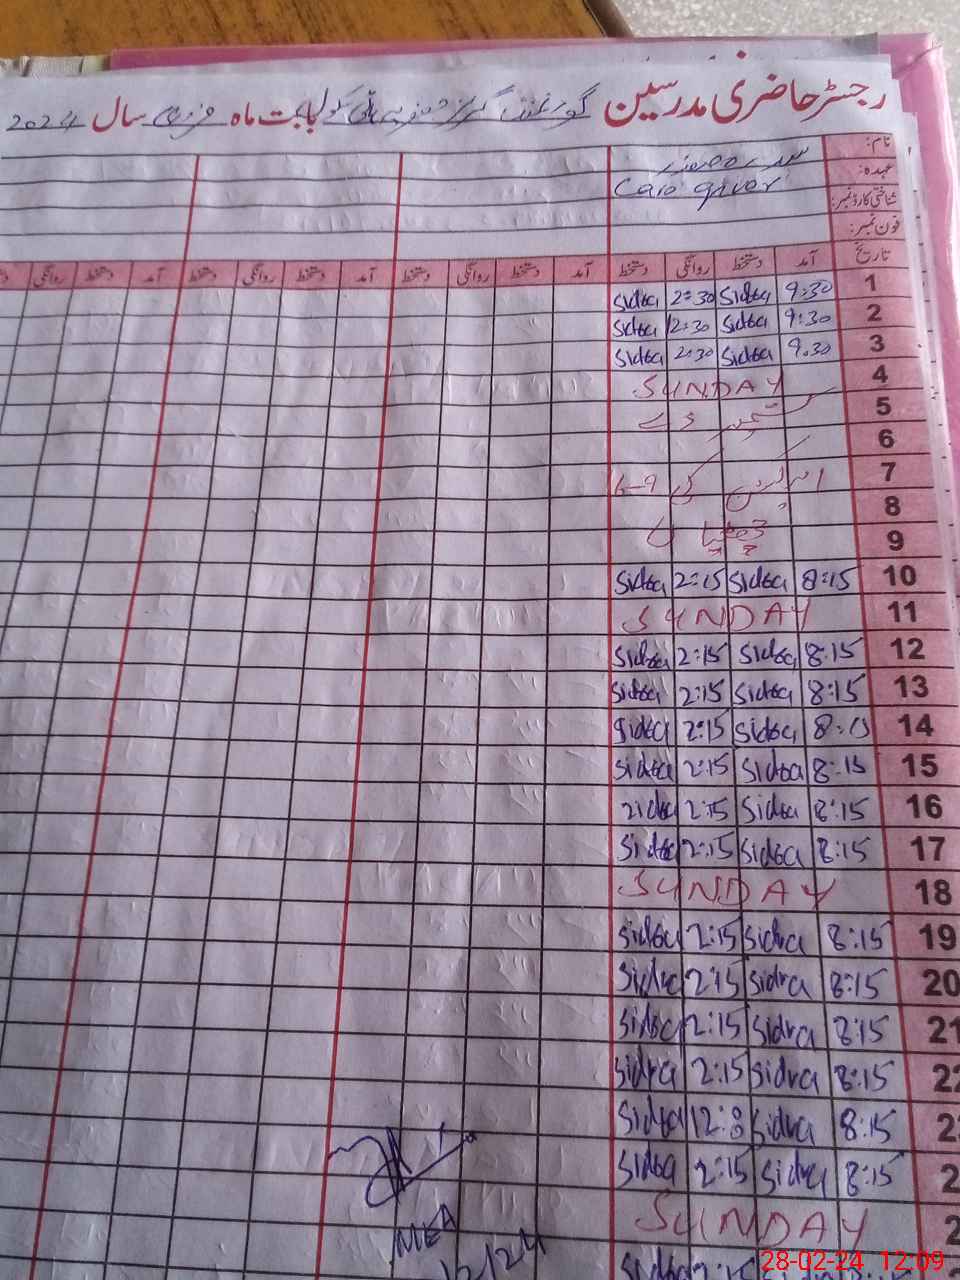 رجسٹر حاضری مدرسین گورنمنٹ گرلز بابت ماہ فروری سال 2024
نام:
عہدہ: Care giver
شناختی کارڈ نمبر:
فون نمبر:
تاریخ آمد دستخط روانگی دستخط آمد دستخط روانگی دستخط آمد دستخط روانگی دستخط آمد دستخط روانگی
1 9:30 Sidra 2:30 Sidra
2 9:30 Sidra 2:30 Sidra
3 9.30 Sidra 2:30 Sidra
4 SUNDAY
5
6
7
8
9 چھٹیاں
10 8:15 Sidra 2:15 Sidra
11 SUNDAY
12 8:15 Sidra 2:15 Sidra
13 8:15 Sidra 2:15 Sidra
14 8:15 Sidra 2:15 Sidra
15 8:15 Sidra 2:15 Sidra
16 8:15 Sidra 2:15 Sidra
17 8:15 Sidra 2:15 Sidra
18 SUNDAY
19 8:15 Sidra 2:15 Sidra
20 8:15 Sidra 2:15 Sidra
21 8:15 Sidra 2:15 Sidra
22 8:15 Sidra 2:15 Sidra
8:15 Sidra 12:00 Sidra
8:15 Sidra 2:15 Sidra
SUNDAY
MEA
28-02-24 12:09